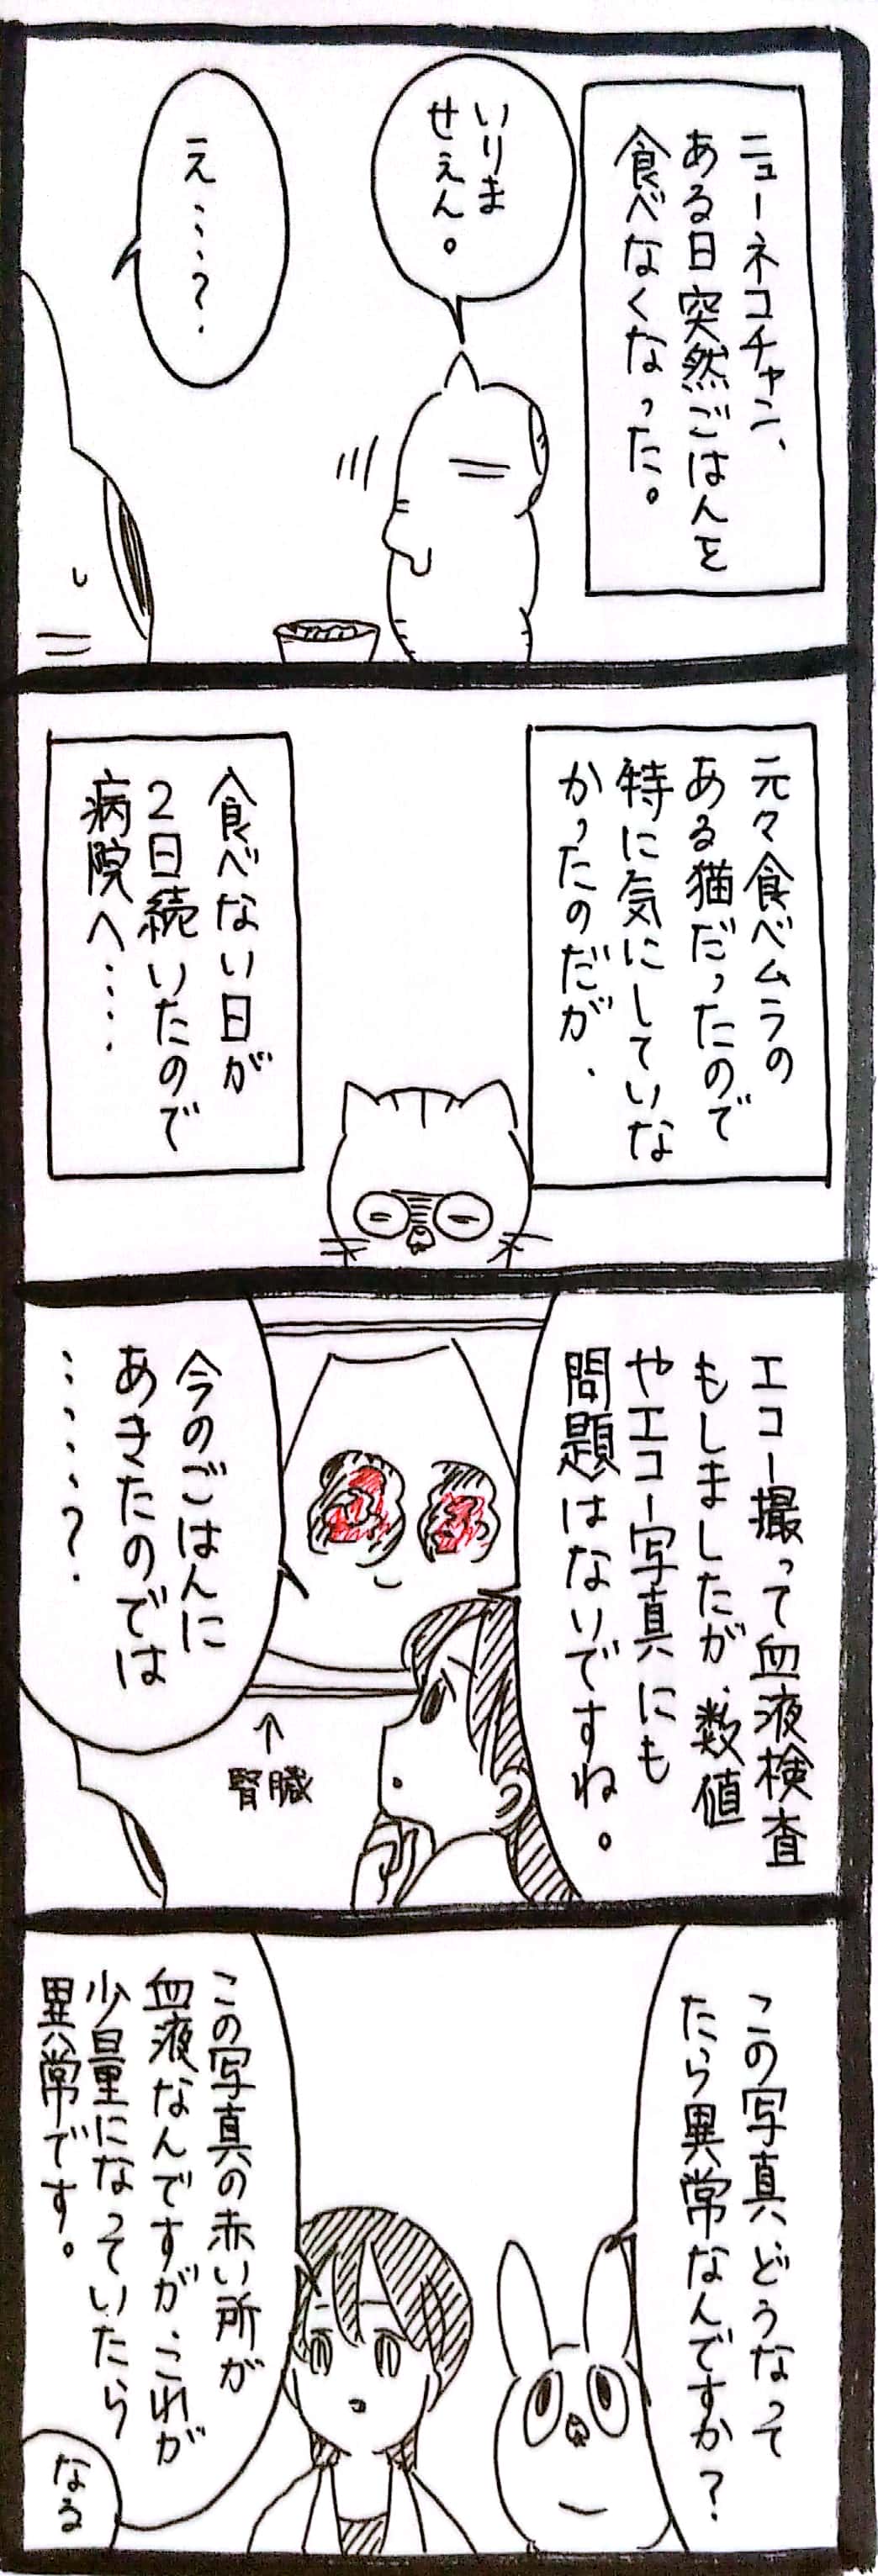 ニューネコチャン、
ある日突然ごはんを
食べなくなった。
いりま
せぇん。
え…?
元々食べムラの
ある猫だったので
特に気にしていな
かったのだが、
食べない日が
2日続いたので
病院へ……
エコー撮って血液検査
もしましたが、数値
やエコー写真にも
問題はないですね。
今のごはんに
あきたのでは
……?
↑
腎臓
この写真、どうなって
たら異常なんですか?
この写真の赤い所が
血液なんですが、これが
少量になっていたら
異常です。
なる